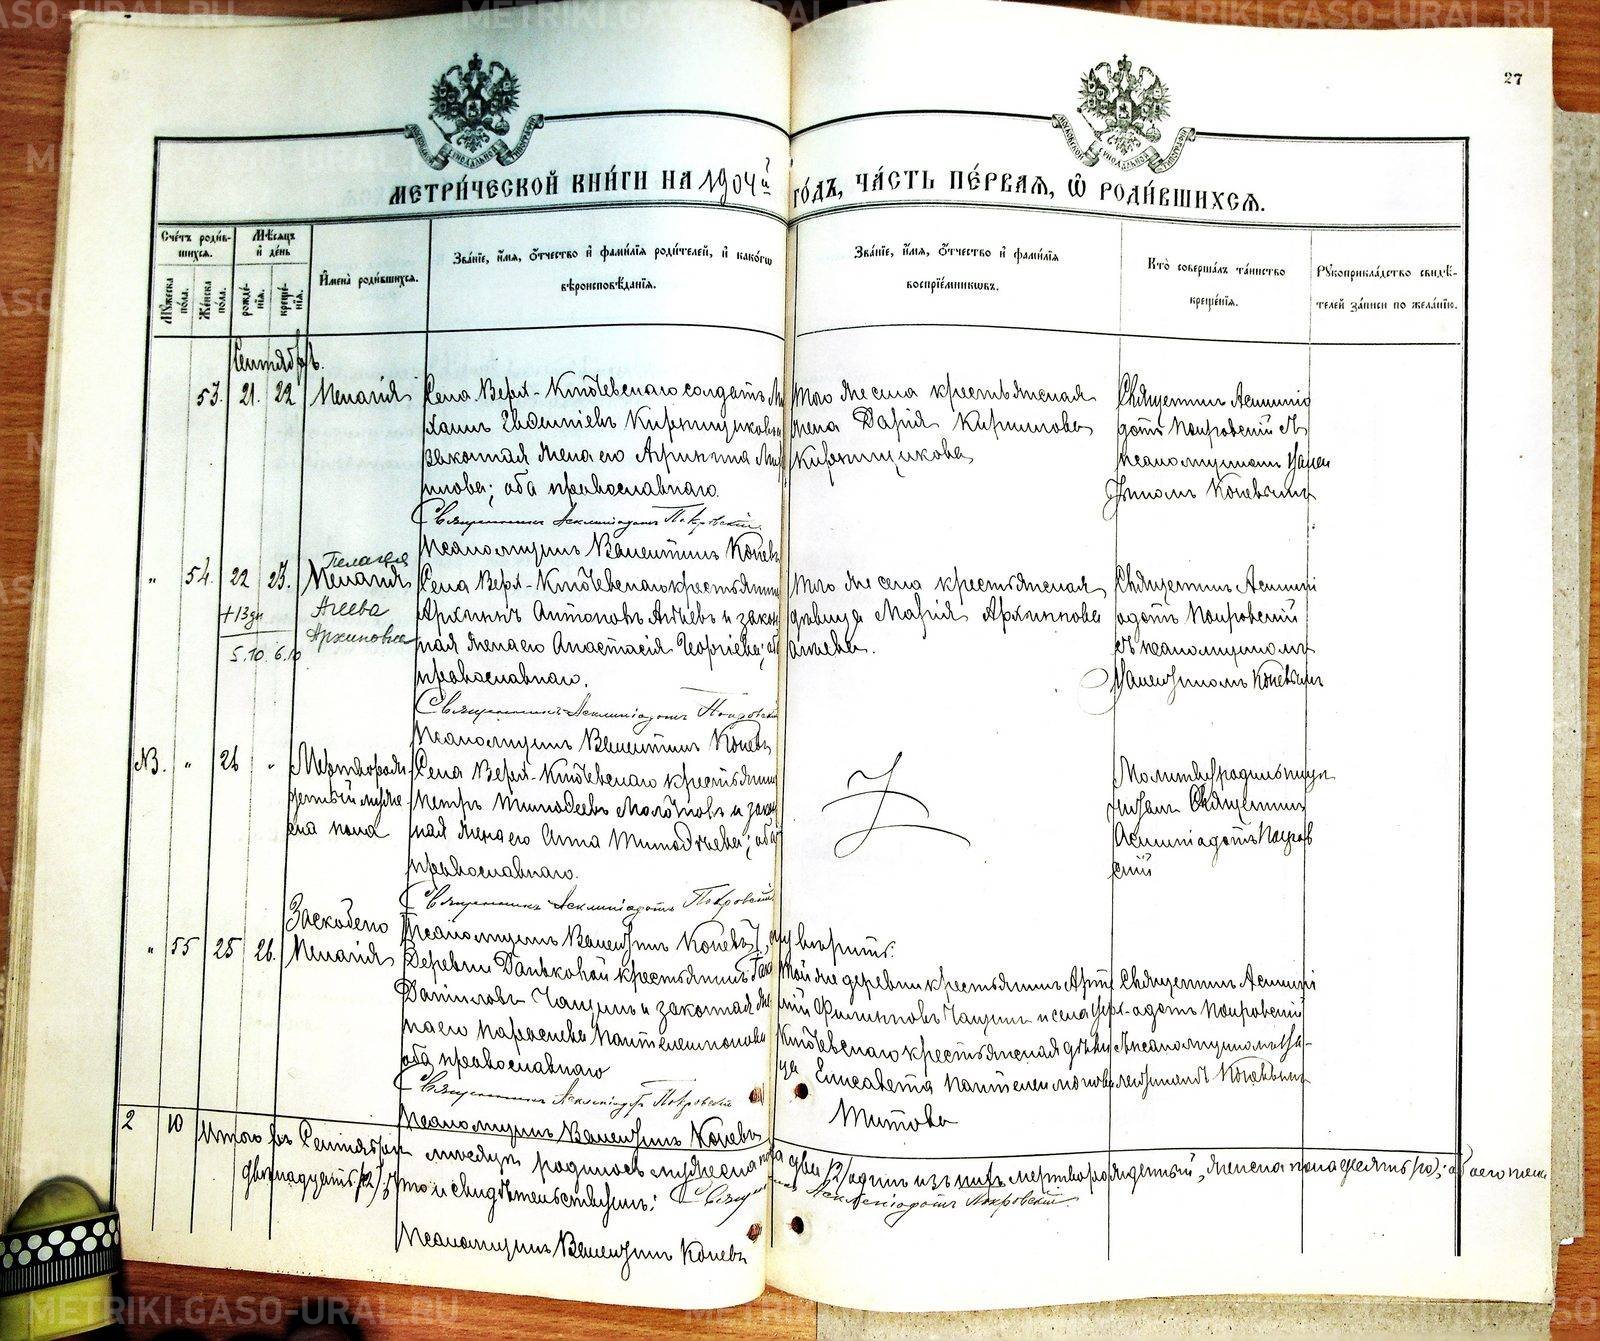 METRIKI.GASO-URAL.RU
27
МЕТРИ́ЧЕСКОЙ КНИ́ГИ НА 1904й ГО́ДЪ, ЧА́СТЬ ПЕ́РВАѦ, Ѡ҆ РОДИ́ВШИХСѦ.
Сче́тъ роди́в-
шихсѧ.
Мѣ́сѧцъ
и҆ де́нь
Мꙋ́жеска по́ла.
Же́нска по́ла.
рожде́-
нїѧ.
креще́-
нїѧ.
И҆мена̀ роди́вшихсѧ.
Зва́нїе, и҆́мѧ, ѻ҆́тчество и҆ фами́лїѧ роди́телей, и҆ како́гѡ
вѣроисповѣ́данїѧ.
Зва́нїе, и҆́мѧ, ѻ҆́тчество и҆ фами́лїѧ
воспрїе́мникѡвъ.
Кто̀ соверша́лъ та́инство
креще́нїѧ.
Рꙋкоприкла́дство свидѣ́-
телей за́писи по жела́нїю.
Сентябрь.
53. 21. 22 Пелагія
Села Верх-Ключевскаго солдатъ Ми
хаилъ Евдокимовъ Кирпищиковъ
законная жена его Агрипина
оба православнаго.
Священникъ Асклипіодотъ Покровскій
Псаломщикъ Валентинъ Коневъ
Того же села крестьянская
жена Дарія Кириллова
Кирпищикова
Священникъ Асклипіо
дотъ Покровскій съ
псаломщикомъ Вален
тиномъ Коневымъ
" 54. 22 23. Пелагія
Пелагея
Агеева
Архиповна
+13дн
5.10 6.10
Села Верх-Ключевскаго крестьянинъ
Архипъ Антоновъ Агѣевъ и закон
ная жена его Анастасія Георгіева; оба
православнаго.
Священникъ Асклипіодотъ Покровскій
Псаломщикъ Валентинъ Коневъ
Того же села крестьянская
дѣвица Марія Архиппова
Агѣева.
Священникъ Асклипі
одотъ Покровскій
съ псаломщикомъ
Валентиномъ Коневымъ
NB. " 26 " Мертворож
денный муже
ска пола
Села Верх-Ключевскаго крестьянинъ
Петръ Тимофеевъ и закон
ная жена его Анна Тимофѣева; оба
православнаго.
Священникъ Асклипіодотъ Покровскій
Псаломщикъ Валентинъ Коневъ
Молитву родильницѣ
читалъ Священникъ
Асклипіодотъ Покров
скій
Заскоблено
" 55 25 26. Пелагія
Деревни крестьянинъ
Даниловъ Чащинъ и законная же
на его Параскева Пантелеимонова
оба православнаго
Священникъ Асклипіодотъ Покровскій
Псаломщикъ Валентинъ Коневъ
Той же деревни крестьянинъ
Филипповъ Чащинъ и села Верх-
Ключевскаго крестьянская дѣви
ца Елисавета Пантелеимонова
Титова
Священникъ Асклипі
одотъ Покровскій
съ псаломщикомъ Ва-
лентиномъ Коневымъ
2 10 Итого въ Сентябрѣ мѣсяцѣ родилось мужеска пола два /2/ одинъ изъ нихъ мертворожденный, женска пола десять /10/; обоего пола
двѣнадцать /12/ что и свидѣтельствуемъ: Священникъ Асклипіодотъ Покровскій
Псаломщикъ Валентинъ Коневъ
METRIKI.GASO-URAL.RU